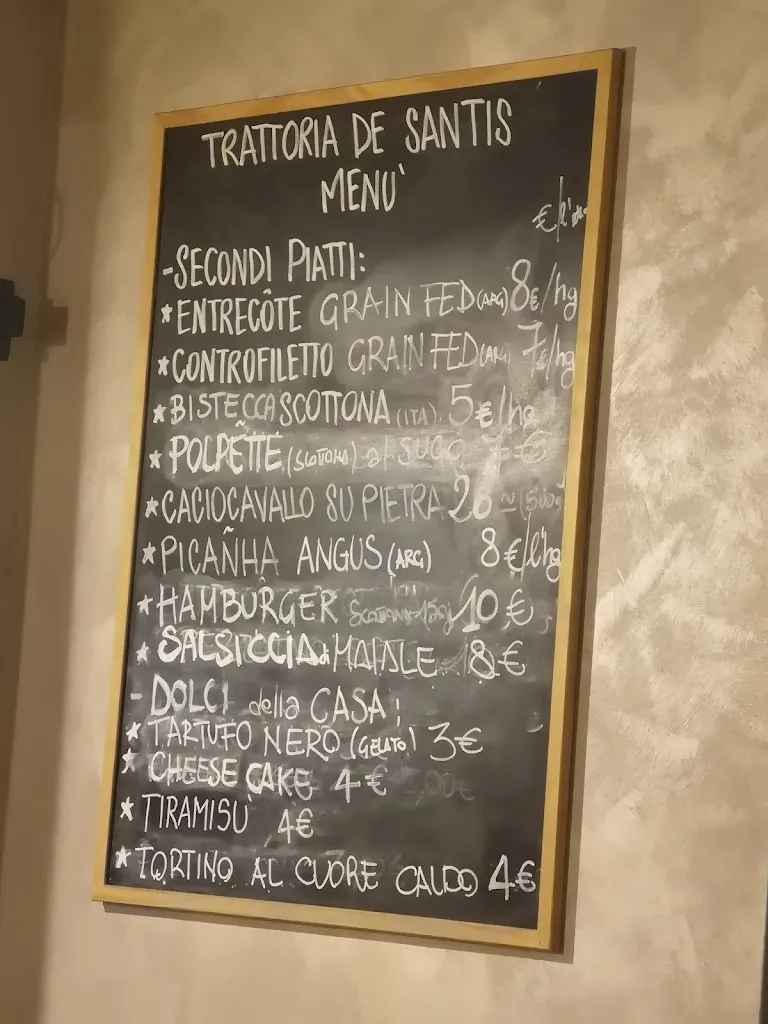 TRATTORIA DE SANTIS
MENU'
-SECONDI PIATTI:
*ENTRECÔTE GRAIN FED (ARG) 8€/hg
*CONTROFILETTO GRAIN FED (ARG) 7€/hg
*BISTECCA SCOTTONA (ITA) 5€/hg
*POLPETTE (SCOTTONA) al SUGO €
*CACIOCAVALLO SU PIETRA 20 ~(500g)
*PICAÑHA ANGUS (ARG) 8€/l'hg
*HAMBURGER SCOTTONA 10€
*SALSICCIA di MAIALE 8€
-DOLCI della CASA:
*TARTUFO NERO (GELATO) 3€
*CHEESE CAKE 4€
*TIRAMISU' 4€
*TORTINO AL CUORE CALDO 4€